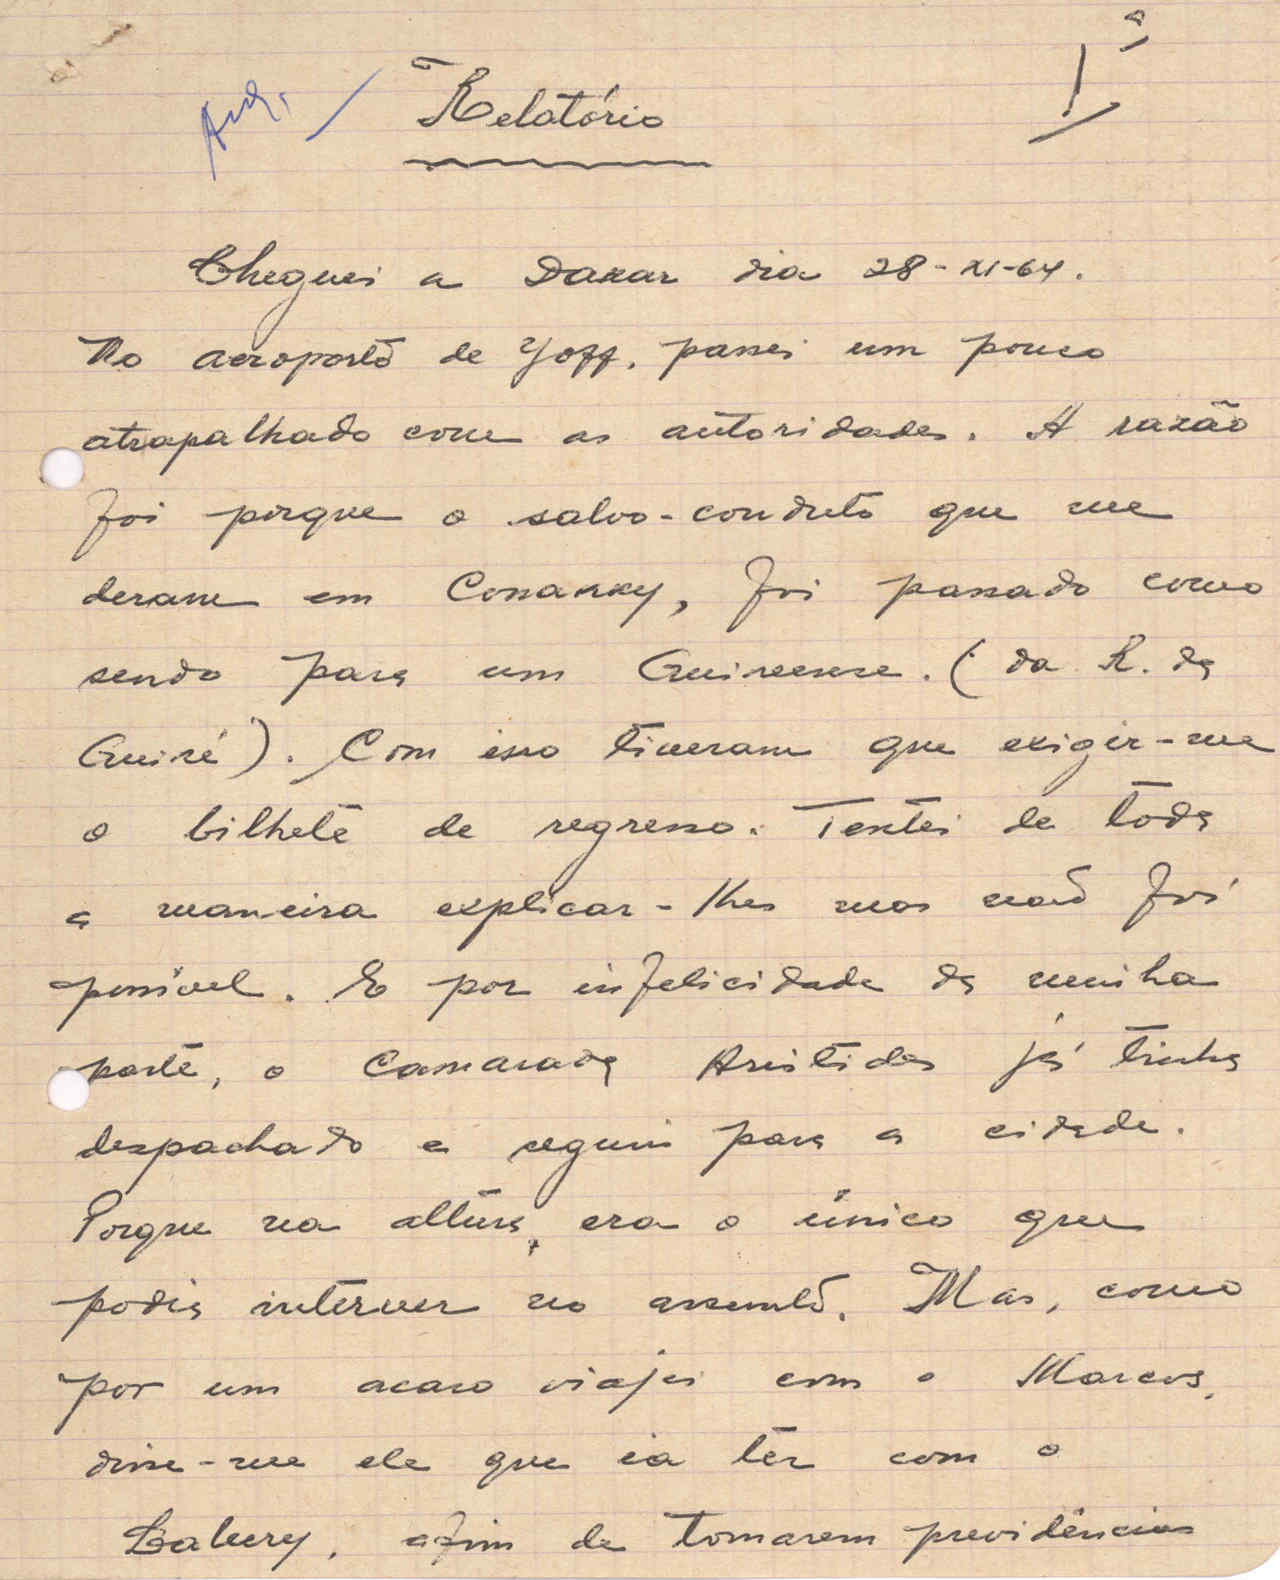 1ª
Relatório
Cheguei a Dakar dia 28-XI-64.
No aeroporto de Yoff, passei um pouco
atrapalhado com as autoridades. A razão
foi porque o salvo-conduto que me
deram em Conakky, foi passado como
sendo para um Guineense. (da R. da
Guiné). Com isso tiveram que exigir-me
o bilhete de regresso. Tentei de toda
a maneira explicar-lhes mas não foi
possível. E por infelicidade da minha
parte, o Camarada Aristides já tinha
despachado e seguiu para a cidade.
Porque na altura, era o único que
podia interver no assunto. Mas, como
por um acaso viajei com o Marcos,
disse-me ele que ia ter com o
afim de tomarem providências